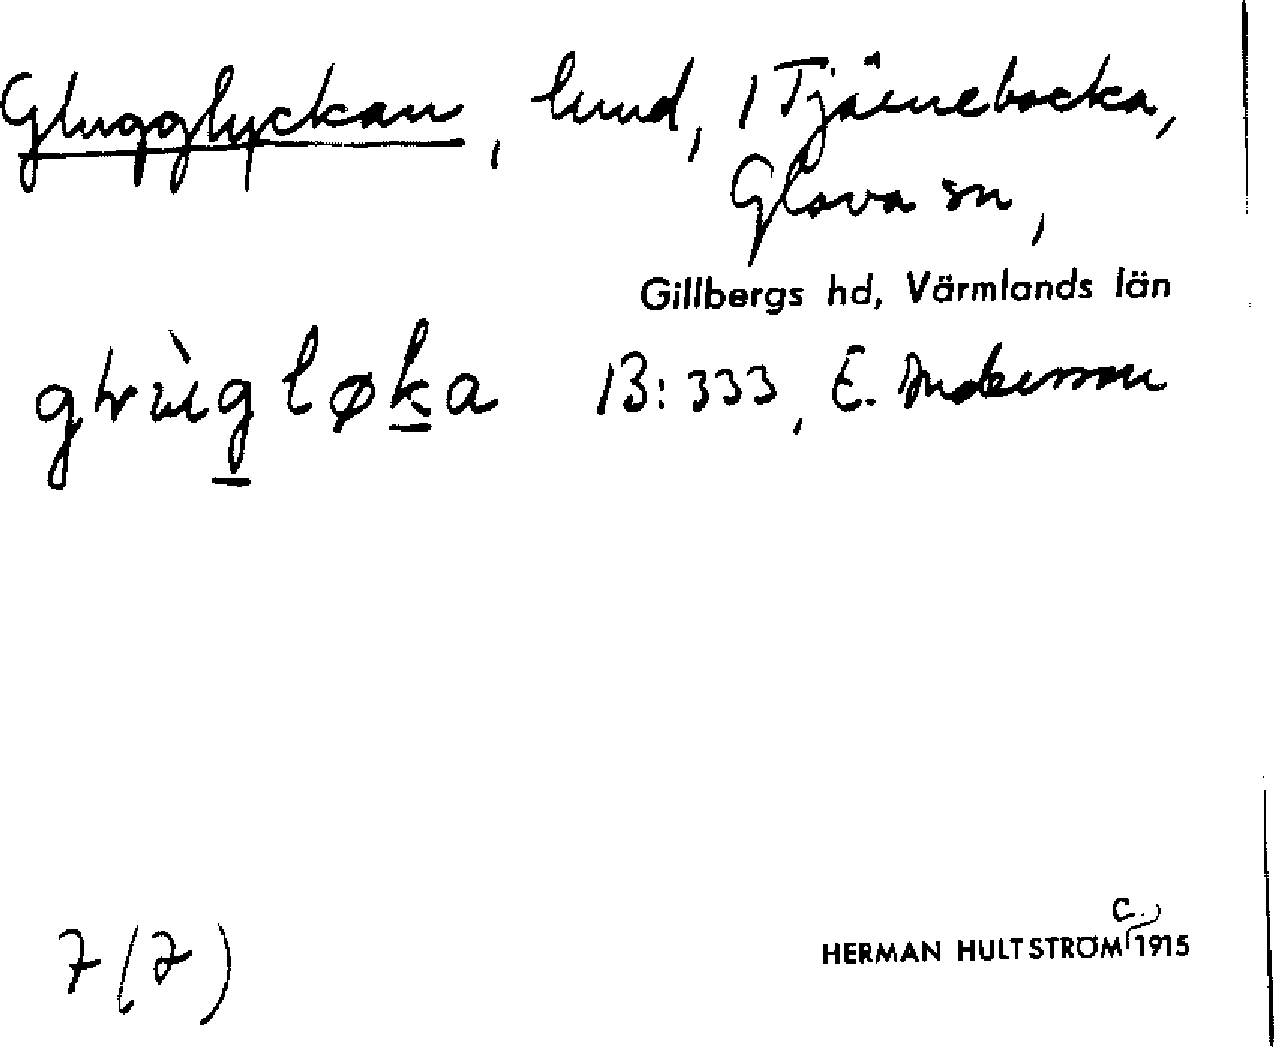 Glugglyckan, lund, 1 Tjärnebacka,
Glava sn,
Gillbergs hd, Värmlands län
13:333, E. Andersson
7 (7)
HERMAN HULTSTRÖM c. 1915